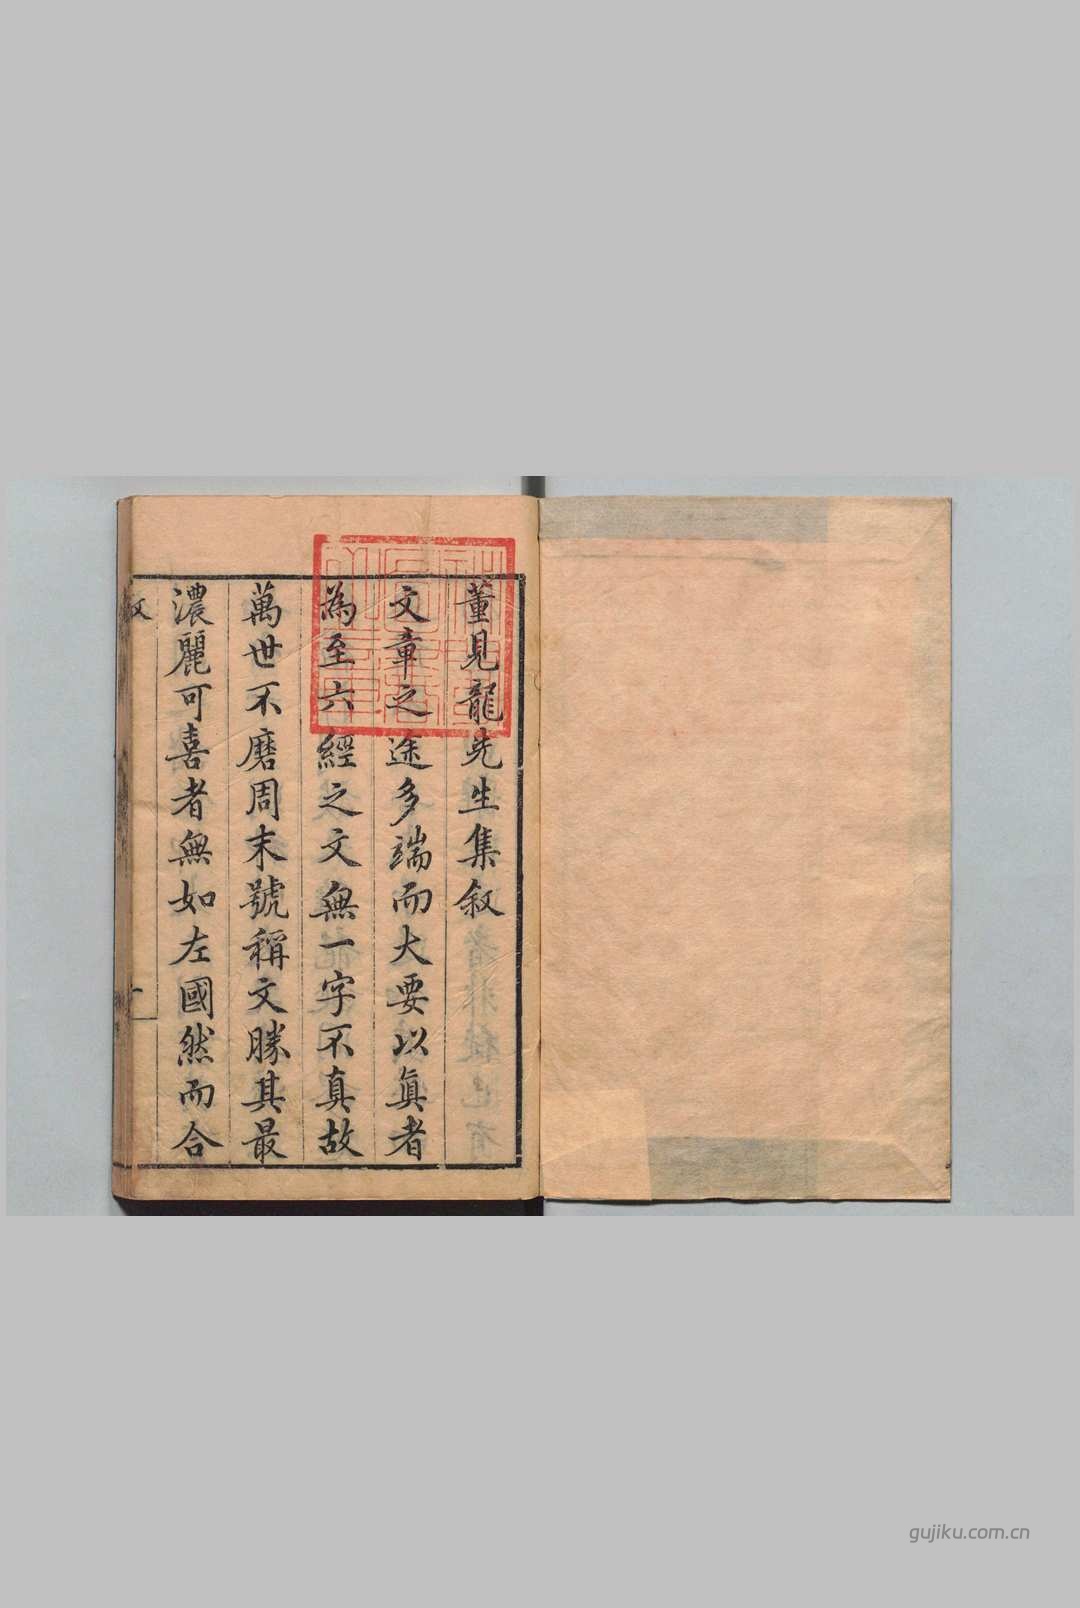 董見龍先生集叙
文章之途多端而大要以眞者
為至六經之文無一字不真故
萬世不磨周末號稱文勝其最
濃麗可喜者無如左國然而合
gujiku.com.cn